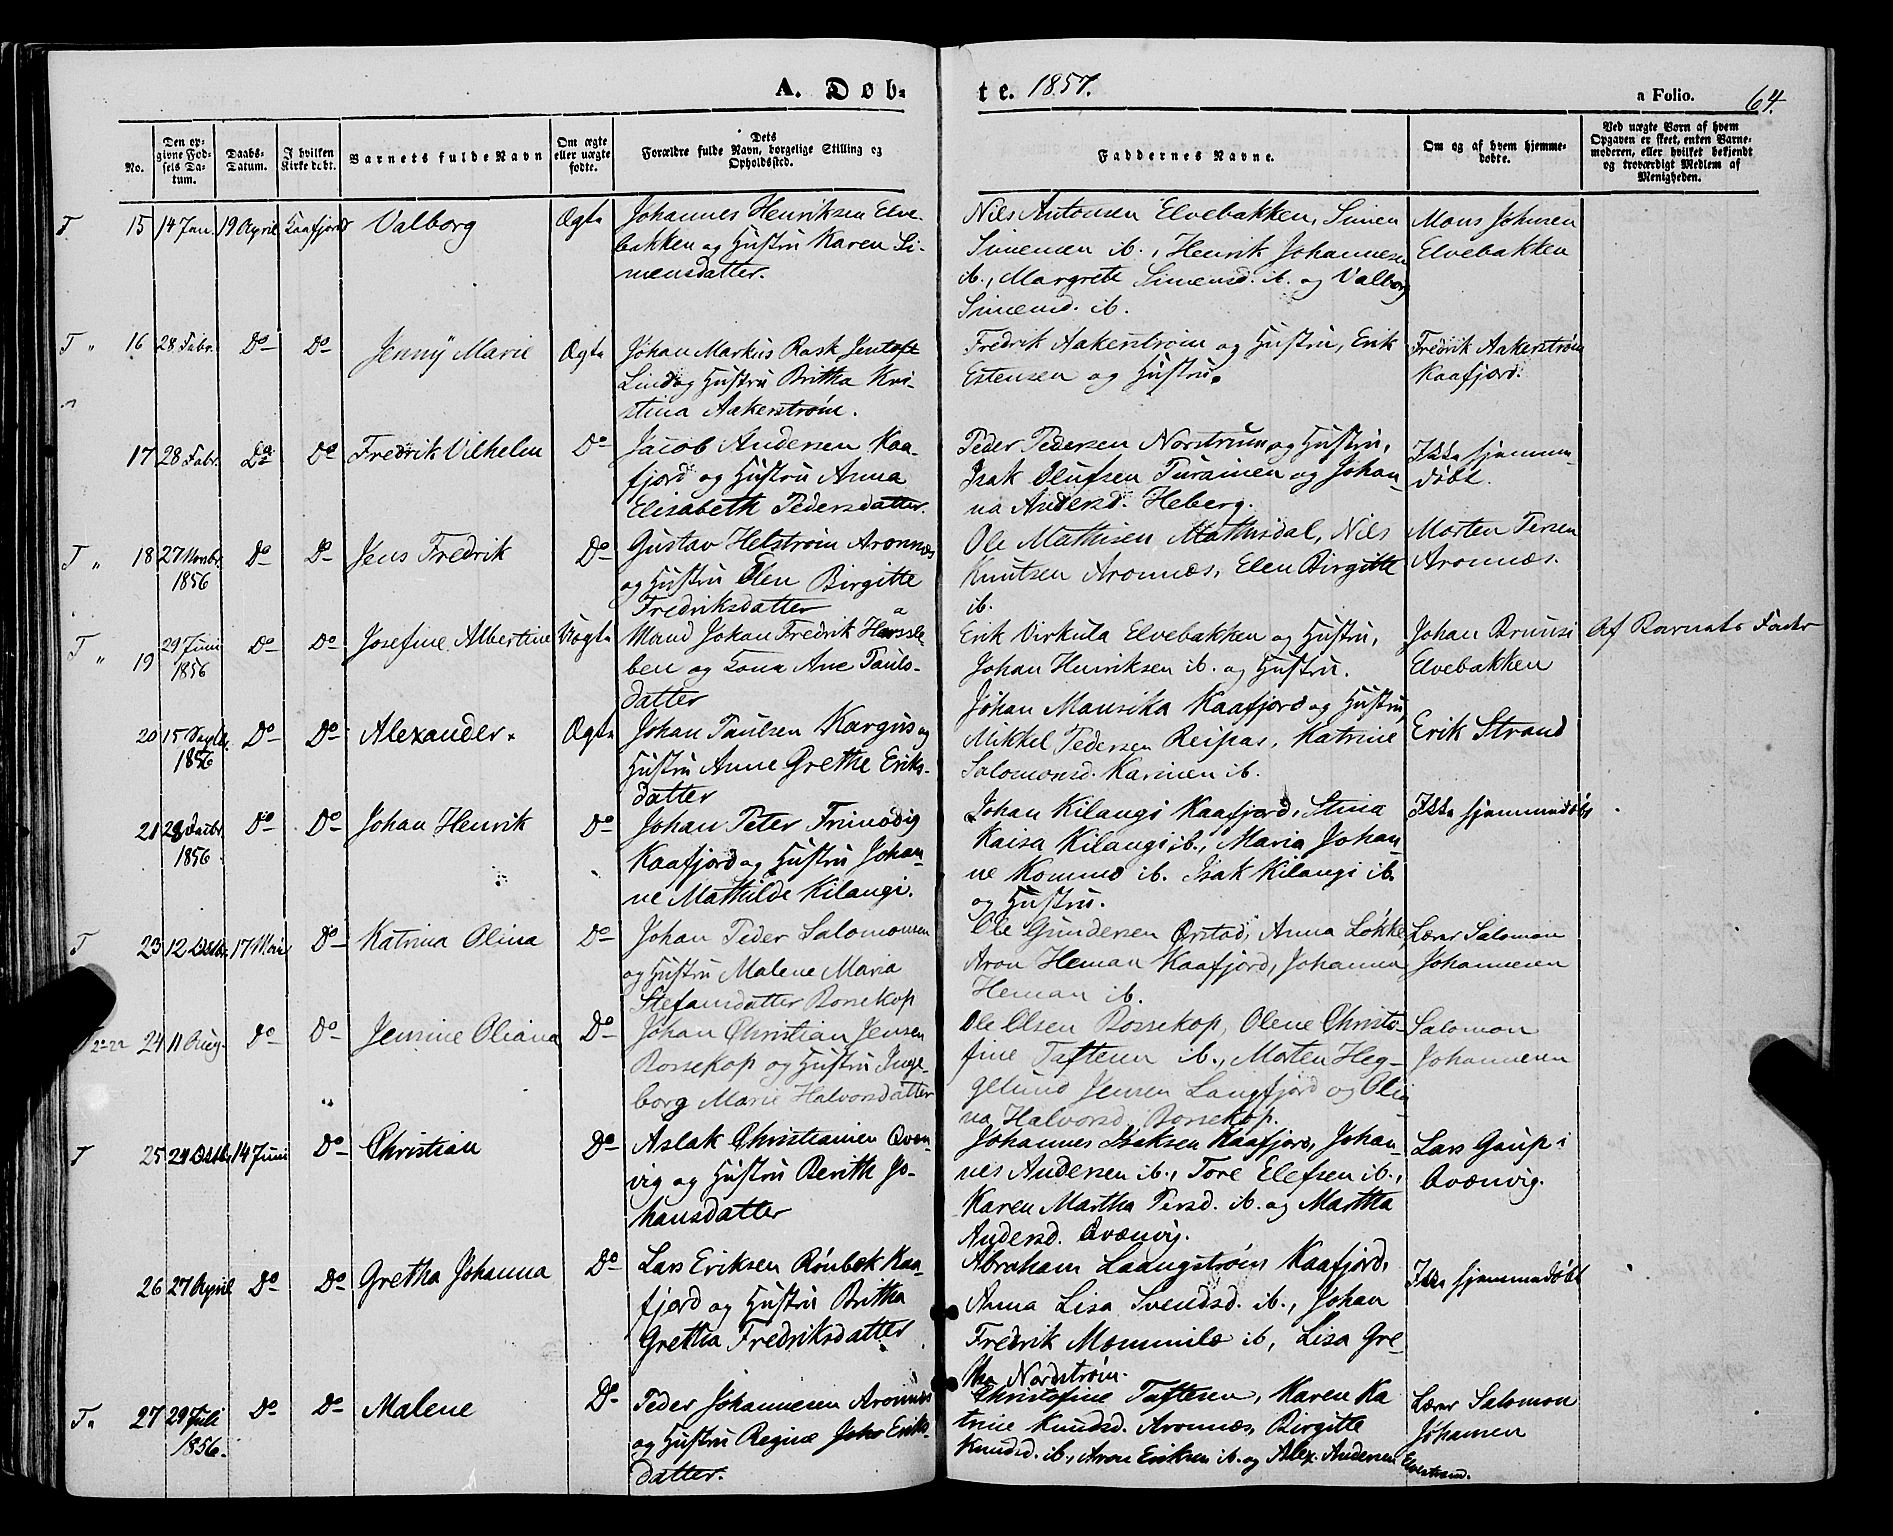 A. Døb-
te. 1857.
a Folio. 64.
No.
Den op-
givne Fød-
sels Da-
tum.
Daabs-
Datum.
I hvilken
Kirke døbt.
Barnets fulde Navn
Om ægte
eller uægte
fødte.
Dets
Forældre fulde Navn, borgelige Stilling og
Opholdssted.
Faddernes Navne.
Om og af hvem hjemme-
døbte.
Ved uægte Børn af hvem
Opgaven er skeet, enten Barne-
moderen, eller hvilket bekjendt
og troværdigt Medlem af
Menigheden.
T. 15 14 Jan. 19 April Kaafjord Valborg Ægte
Johannes Henriksen Elve-
bakken og Hustru Karen Si-
mensdatter.
Nils Antonsen Elvebakken, Simen
Simensen ib., Henrik Johannesen
ib., Margrete Simensd. ib. og Valborg
Simensd. ib.
Mons Johnsen
Elvebakken
T " 16 28 Febr. Do Do Jenny Marie Ægte
Johan Markus Rask Jentoft
Lind og Hustru Britha Kri-
stina Aakerstrøm.
Fredrik Aakerstrøm og Hustru, Erik
Estensen og Hustru.
Fredrik Aakerstrøm
Kaafjord.
17 28 Febr. Do Do Fredrik Vilhelm Do
Jacob Andersen Kaa-
fjord og Hustru Anna
Elisabeth Pedersdatter.
Peder Pedersen Norstrum og Hustru,
Isak Olufsen Turainen og Johan-
na Andersd. Heberg.
Ikke hjemme-
døbt.
T " 18 27 Novbr. Do Do Jens Fredrik Do
1856
Gustav Helstrøm Aronnæs
og Hustru Elen Birgitte
Fredriksdatter
Ole Mathisen Mathisdal, Nils
Knutsen Aronnæs, Elen Birgitte
ib.
Morten Persen
Aronnæs.
T " 19 29 Juni Do Do Josefine Albertine Uægte
1856
Mand Johan Fredrik Harsle
ben og Kona Ane Pauls-
datter
Erik Virkula Elvebakken og Hustru,
Johan Henriksen ib. og Hustru.
Johan Bruusi
Elvebakken
Af Barnets Fader
20 15 Septbr. Do Do Alexander. Ægte
1856
Johan Paulsen Kargus og
Hustru Anne Grethe Eriks-
datter
Johan Mansika Kaafjord og Hustru,
Mikkel Pedersen Reipas, Katrine
Salomonsd. Karinen ib.
Erik Strand
21 28 Decbr. Do Do Johan Henrik Do
1856
Johan Peter Frimodig
Kaafjord og Hustru Johan-
ne Mathilde Kilangi.
Johan Kilangi Kaafjord, Stina
Kaisa Kilangi ib., Maria Johan-
ne Kommo ib. Isak Kilangi ib.
og Hustru.
Ikke hjemmedøbt
T 23 12 Octbr. 17 Mai Do Katrina Olina Do
Johan Peder Salomonsen
og Hustru Malene Maria
Stefansdatter Bossekop
Ole Gundersen Ørstad, Anna Løkke,
Aron Heman Kaafjord, Johanna
Heman ib.
Lærer Salomon
Johannesen
T 24 11 Aug. Do Do Jensine Oliana Do
Johan Christian Jensen
Bossekop og Hustru Inge-
borg Marie Halvorsdatter
Ole Olsen Bossekop, Olene Christo-
fine Taftesen ib., Morten Heg-
gelund Jensen Langfjord og Olia-
na Halvorsd. Bossekop.
Salomon
Johannesen
T 25 29 Octbr. 14 Juni Do Christian Do
Aslak Christiansen Qvæn-
vig og Hustru Berith Jo-
hansdatter
Johannes Isaksen Kaafjord, Johan-
nes Andersen ib., Tore Elefsen ib.,
Karen Martha Persd. ib. og Martha
Andersd. Qvænvig.
Lars Gaup i
Qvænvig.
26 27 April Do Do Gretha Johanna Do
Lars Eriksen Rønbek Kaa-
fjord og Hustru Britha
Gretha Fredriksdatter
Abraham Laangstrøm Kaafjord,
Anna Lisa Svendsd. ib., Johan
Fredrik Mommilo ib, Lisa Gre-
tha Nordstrøm.
Ikke hjemmedøbt
T " 27 29 Juli Do Do Malene Do
1856.
Peder Johannesen Aronnæs
og Hustru Regine Eriks-
datter.
Christofine Taftesen, Karen Ka
trine Knudsd. Aronnæs, Birgitte
Knudsd. ib., Aron Eriksen ib. og Alex. Andersen Elvestrand.
Lærer Salomon
Johansen